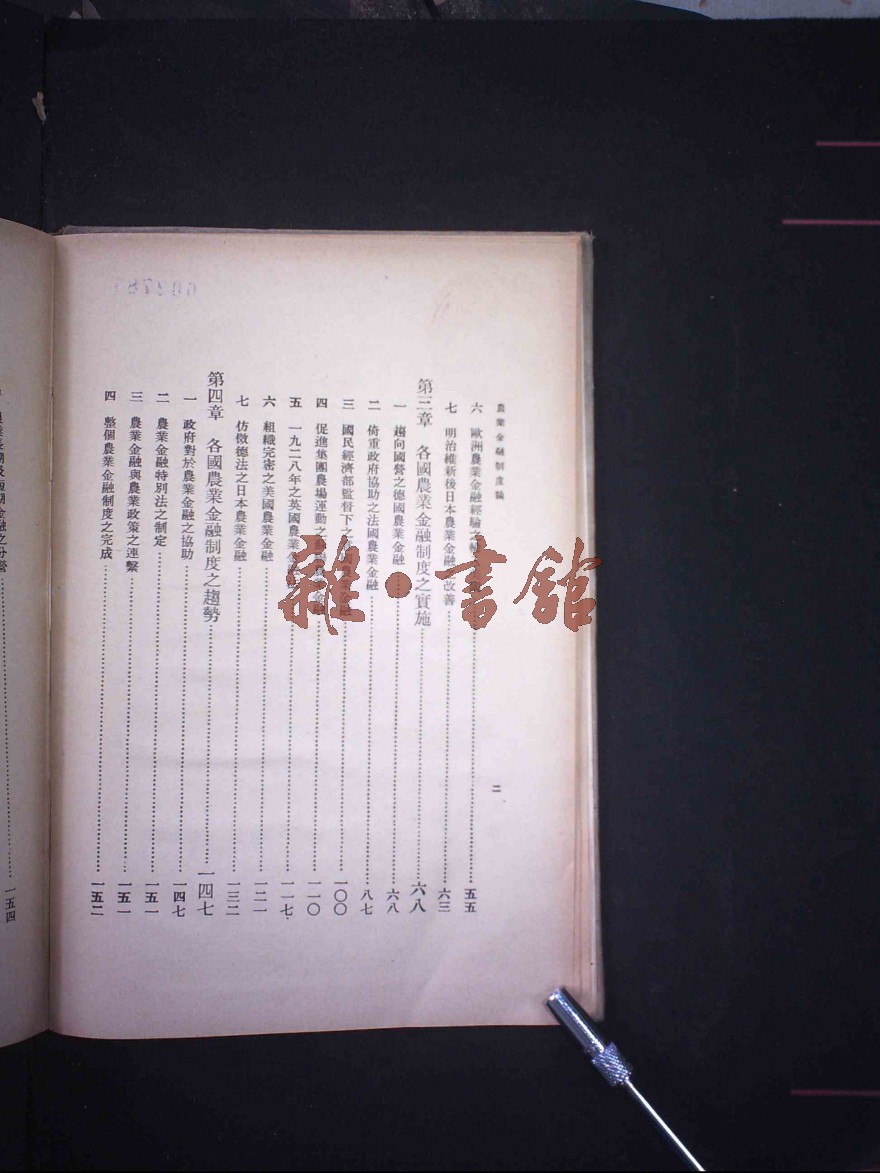 農業金融制度論
二
六 歐洲農業金融經驗之 五五
七 明治維新後日本農業金融之改善 六三
第三章 各國農業金融制度之實施 六八
一 趨向國營之德國農業金融 六八
二 倚重政府協助之法國農業金融 八七
三 國民經濟部監督下之 國農業金融 一〇〇
四 促進集團農場運動之 農業金融 一一〇
五 一九二八年之英國農業金融 一一七
六 組織完密之美國農業金融 一二一
七 仿傚德法之日本農業金融 一三二
第四章 各國農業金融制度之趨勢 一四七
一 政府對於農業金融之協助 一四七
二 農業金融特別法之制定 一五一
三 農業金融與農業政策之連繫 一五一
四 整個農業金融制度之完成 一五二
農業長期及短期金融之分營 一五四
雜·書館